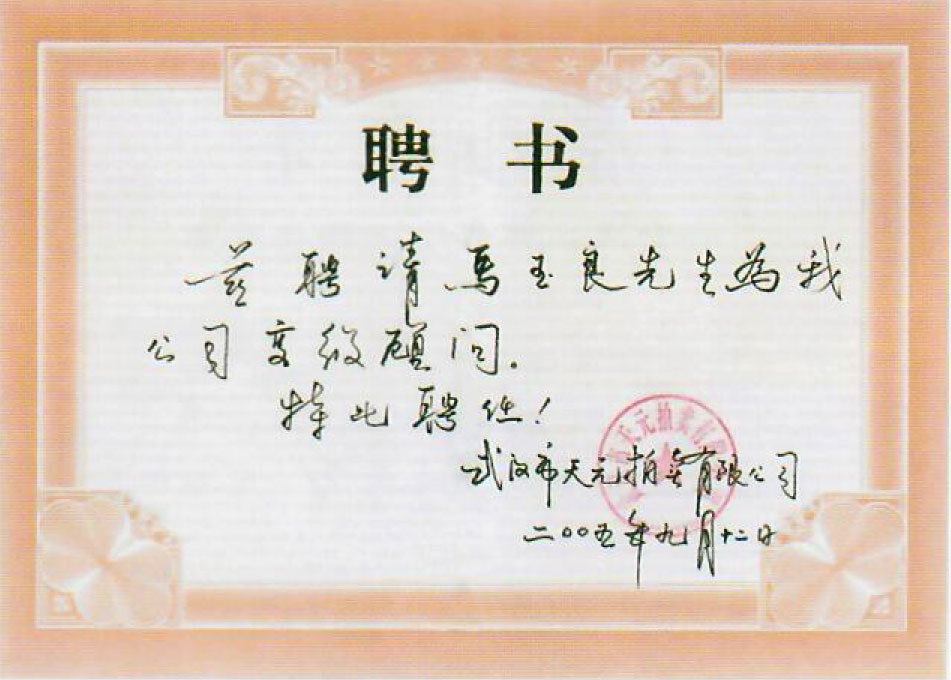 聘书
兹聘请馬玉良先生為我
公司高级顾问。
特此聘任！
武汉市天元拍卖有限公司
二00五年九月十二日